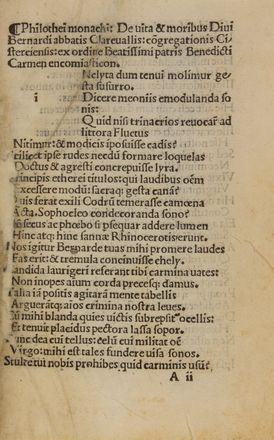 ¶Philothei monachi: De vita & moribus Divi
Bernardi abbatis Clarevallis: cōgregationis Ci
sterciensis: ex ordine Beatissimi patris Benedicti
Carmen encomiasticon.
Nclyta dum tenui molimur ge
sta susurro.
i Dicere meoniis emodulanda so
nis:
Quid nisi trinacrios revocār ad
littora Fluctus
Nitimur: & modicis iposuisse cadis?
ipse rudes nedū formare loquelas
Doctus & agresti concrepuisse lyra.
rincipis etherei titulos: qui laudibus oēm
Excessere modū: sacraq; gesta canā?
Quis ferat exili Codrū temerasse camœna
Acta. Sophocleo condecoranda sono?
ac phœbo si psequar addere lumen
Hinc atq; hinc sannæ Rhinocerotis erunt.
Nos igitur Bernarde tuas mihi promere laudes
Fas erit: & tremula concinuisse chely.
andida laurigeri referant tibi carmina vates:
Non inopes aium corda precesq; damus.
alia iā positis agitarā mente tabellis
Arguerātq; aios crimina nostra leves.
Cū mihi blanda quies victis subrepsit ocellis:
Et tenuit placidus pectora lassa sopor.
dea cui tellus: celū cui militat oē
Virgo: mihi est tales fundere visa sonos.
Stulte tui nobis prohibes quid carminis usū?
A ii